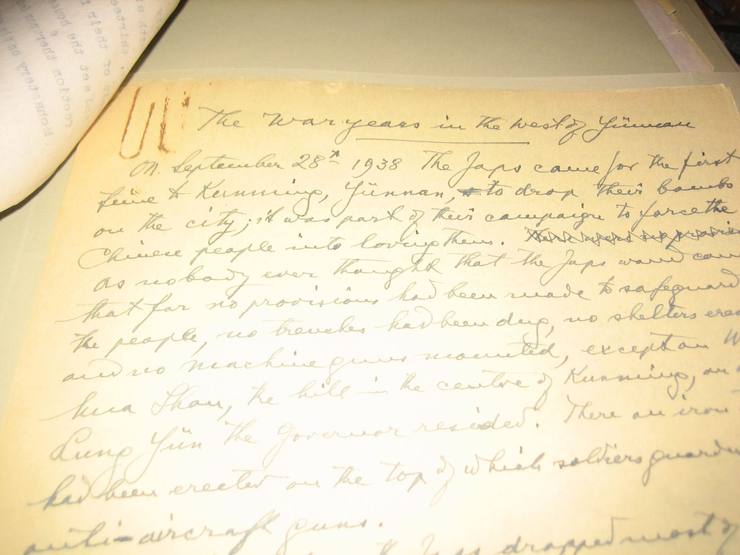 The War years in the West of Yünnan
On September 28th 1938 The Japs came for the first
time to Kunming, Yünnan, to drop their bombs
on the city; it was part of their campaign to force the
Chinese people into loving them.
As nobody ever thought that the Japs would come
that far no provisions had been made to safeguard
the people, no trenches had been dug, no shelters
and no machine guns mounted, except on W
hua Shan, the hill in the centre of Kunming, on
Lung Yün the Governor resided. There an iron
had been erected on the top of which soldiers
anti-aircraft guns.
dropped most of